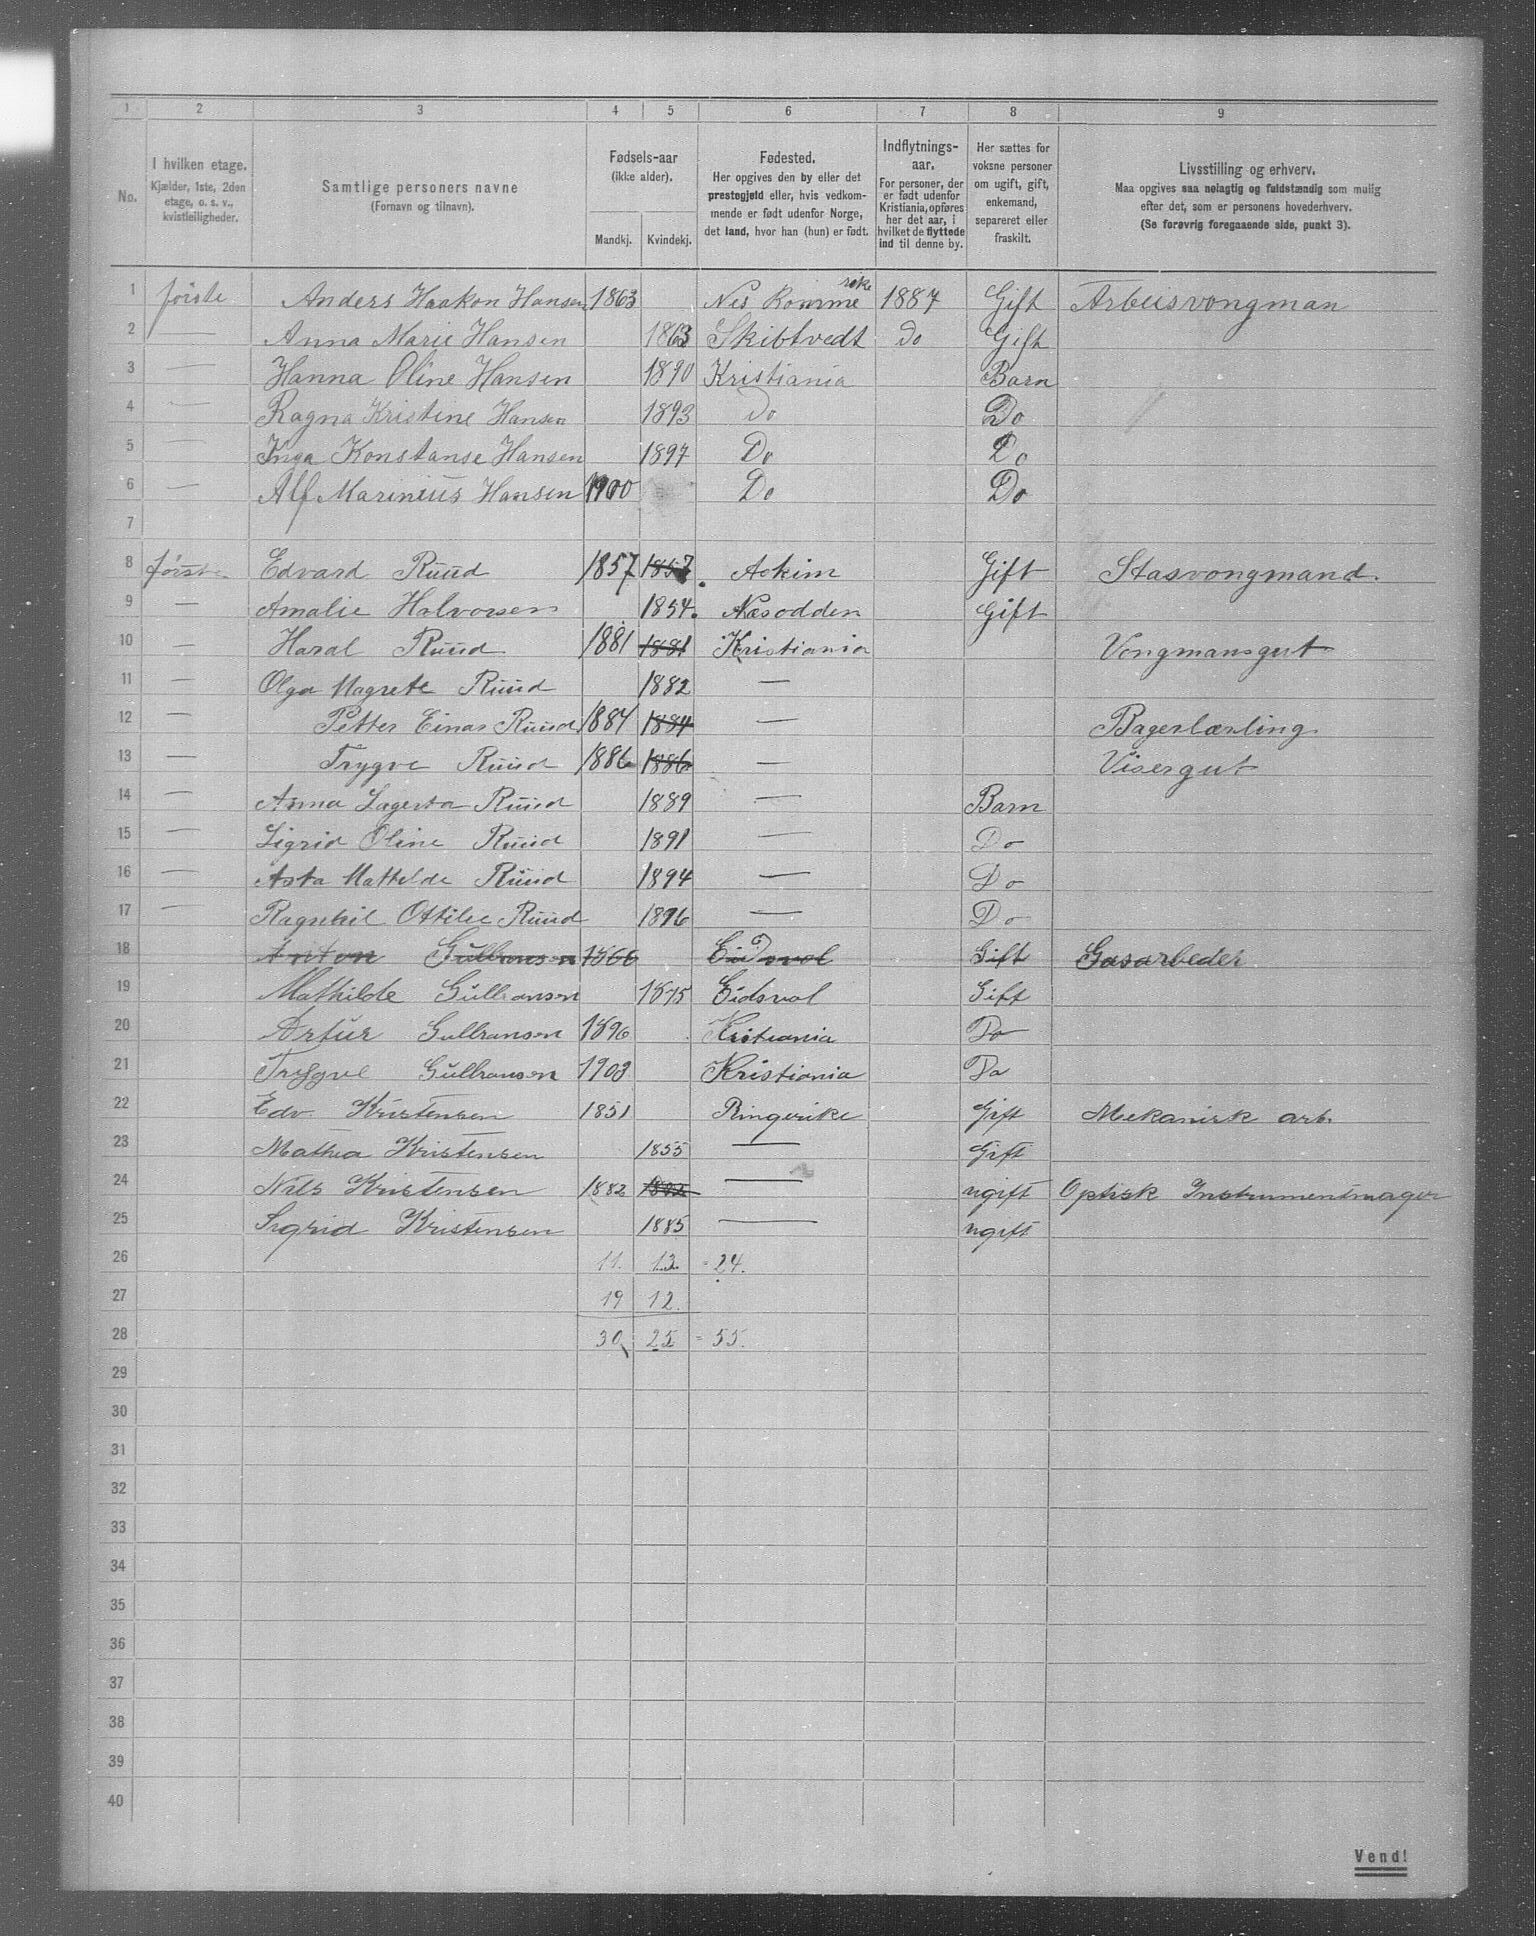 1 2 3 4 5 6 7 8 9
No.
I hvilken etage.
Kjælder, 1ste, 2den
etage, o. s. v.,
kvistleiligheder.
Samtlige personers navne
(Fornavn og tilnavn).
Fødsels-aar
(ikke alder).
Mandkj. Kvindekj.
Fødested.
Her opgives den by eller det
prestegjeld eller, hvis vedkom-
mende er født udenfor Norge,
det land, hvor han (hun) er født.
Indflytnings-
aar.
For personer, der
er født udenfor
Kristiania, opføres
her det aar, i
hvilket de flyttede
ind til denne by.
Her sættes for
voksne personer
om ugift, gift,
enkemand,
separeret eller
fraskilt.
Livsstilling og erhverv.
Maa opgives saa nøiagtig og fuldstændig som mulig
efter det, som er personens hovederhverv.
(Se forøvrig foregaaende side, punkt 3).
1 første Anders Haakon Hansen 1863 Nes Romme rike 1887 Gift Arbeisvongman
2 — Anna Marie Hansen 1863 Skibtvedt Do Gift
3 — Hanna Oline Hansen 1890 Kristiania Barn
4 — Ragna Kristine Hansen 1893 Do Do
5 — Inga Konstanse Hansen 1897 Do Do
6 — Alf Marinius Hansen 1900 Do Do
7
8 første Edvard Ruud 1857 1857 Askim Gift Stasvongmand.
9 — Amalie Halvorsen 1854. Næsodden Gift
10 — Haral Ruud 1881 1881 Kristiania Vongmansgut
11 — Olga Magrete Ruud 1882 —
12 — Petter Einar Ruud 1884 1884 — Bagerlærling
13 — Trygve Ruud 1886 1886 — Visergut
14 — Anna Lagerta Ruud 1889 — Barn
15 — Sigrid Oline Ruud 1891 — Do
16 — Asta Mathilde Ruud 1894 — Do
17 — Ragnhil Ottilie Ruud 1896 — Do
18 Anton Gulbransen 1866 Eidsvol Gift Gasarbeder
19 Mathilde Gulbransen 1875 Eidsvol Gift
20 Artur Gulbransen 1896 Kristiania Do
21 Tryggve Gulbransen 1903 Kristiania Do
22 Edv. Kristensen 1851 Ringerike Gift Mekanisk arb.
23 Mathea Kristensen 1855 — Gift
24 Nils Kristensen 1882 1882 — ugift Optisk Instrumentmager
25 Sigrid Kristensen 1885 — ugift
26 11. 13. = 24.
27 19 12.
28 30 25 = 55.
29
30
31
32
33
34
35
36
37
38
39
40
Vend!